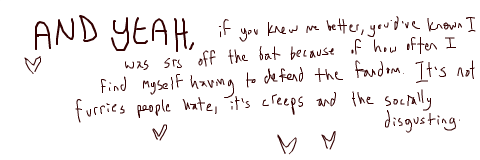 AND YEAH, if you knew me better, you'd've known I
was srs off the bat because of how often I
find myself having to defend the fandom. It's not
furries people hate, it's creeps and the socially
disgusting.